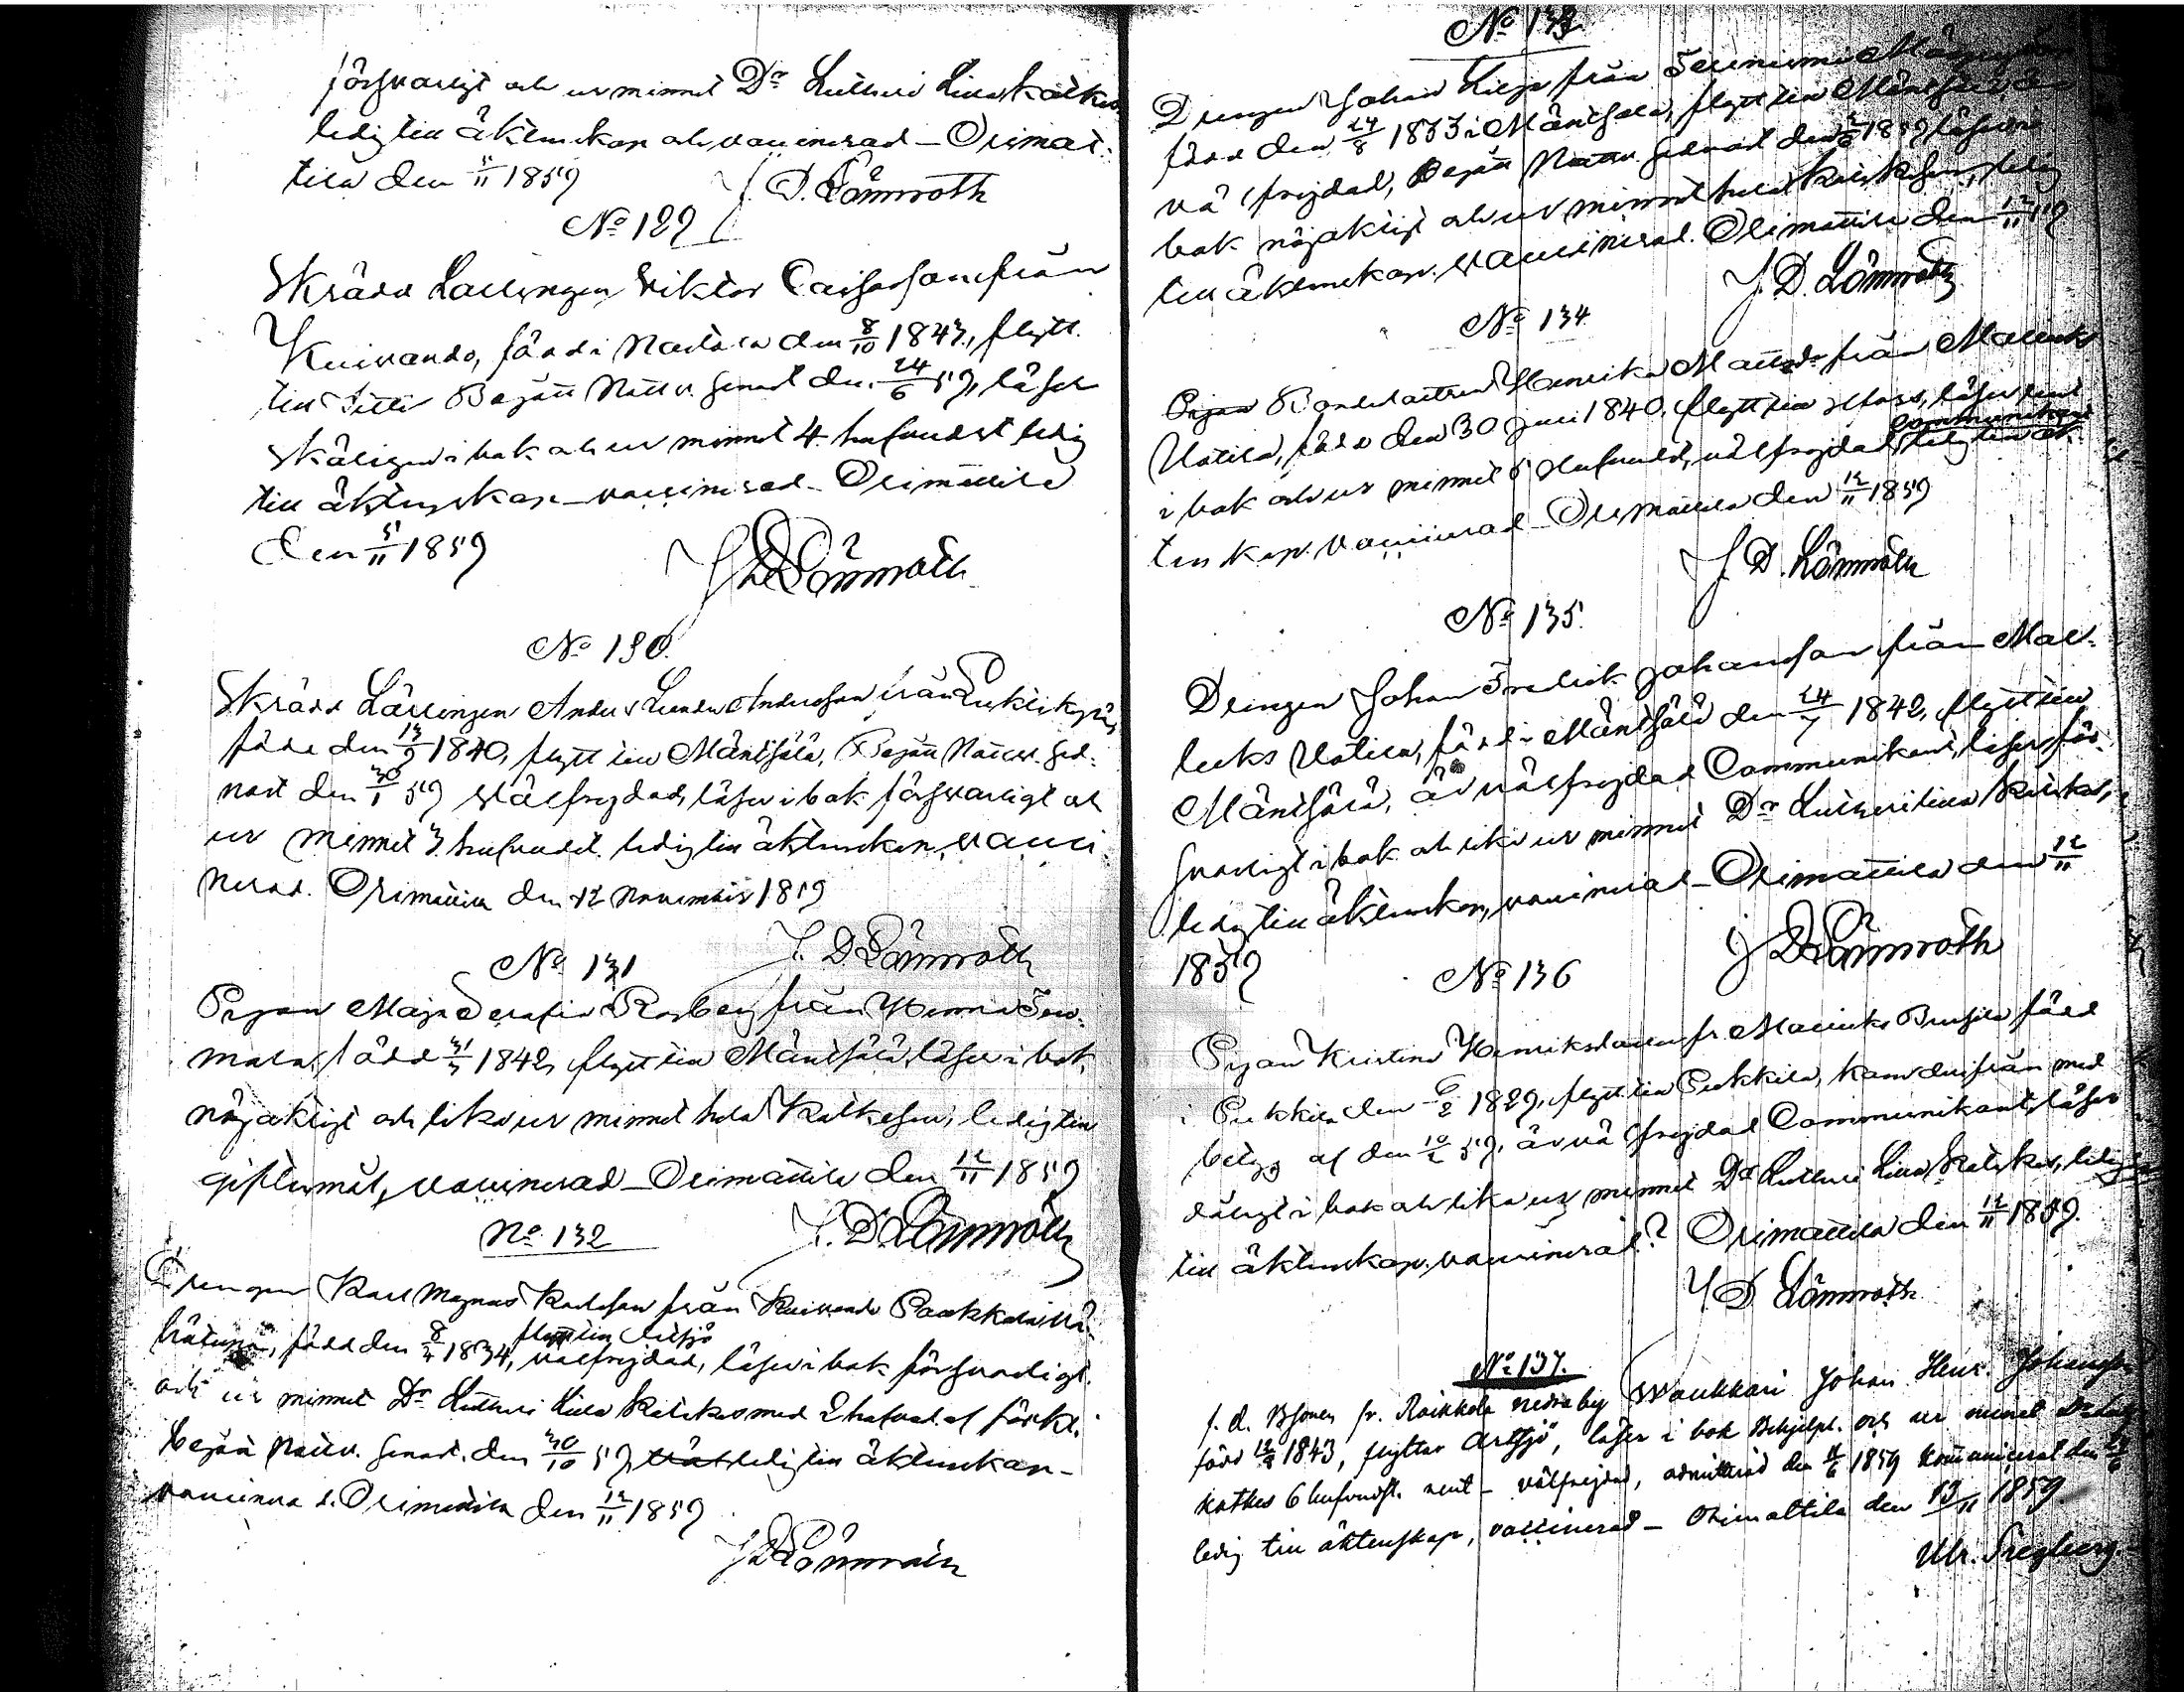 försvarligt och ur minnet Dr Lutheri Lilla Katkes
ledig till äktenskap och vaccinerad – Orimat-
tila den 5/11 1859 J. D. Lönnroth
No 129
Skrädd Lärlingen Viktor Carlsson från
Kuivando, född i Nastola den 8/10 1843, flytt.
till Iitti Begått Nattv. senast den 24/6 59, läser
skäligen i bok och ur minnet 4 hufvudst ledig
till äktenskap – vaccinerad – Orimattila
den 5/11 1859 J D Lönnroth
No 130
Skrädd Lärlingen Anders Leander Andersson från
född den 13/9 1840, flytt till Mäntsälä, Begått Nattv. sed-
nast den 30/1 59 välfrejdad, läser i bok försvarligt och
ur minnet 3 hufvudst. ledig till äktenskap, vacci
nerad. Orimattila den 12 November 1859
No 131 J. D. Lönnroth
Pigan Maja Serafia Rosberg från Henna
mala, född 31/3 1842, flytt till Mäntsälä, läser i bok
nöjaktigt och lika ur minnet hela Katkesen, ledig till
giftermål, vaccinerad – Orimattila den 12/11 1859
No 132 J. D. Lönnroth
Drengen Karl Magnus Karlsson från Kuivando Paakkola
född den 8/4 1834, flytt till Artsjö välfrejdad, läser i bok försvarligt
och ur minnet Dr Lutheri Lilla Katekes med 2 hufvud af förkl.
begått Nattv. senast. den 30/10 59, ledig till äktenskap –
vaccinerad. Orimattila den 12/11 1859
J D Lönnroth
No 133
Drengen Johan Lilja från
född den 24/8 1833 i Mäntsälä, flytt till Mäntsälä, är
väl frejdad, Begått Nattv. sednast den 1859 läser i
bok nöjaktigt och ur minnet hela Katekesen, ledig
till äktenskap. vaccinerad. Orimattila den 12/11 59
J. D. Lönnroth
No 134
Pigan Bondedottren Henrika Mattsdr från Mallusk
Uotila, född den 30 juni 1840, flytt till läser rent
i bok och ur minnet 5 Hufvudst, välfrejdad, communicerat ledig till äk-
tenskap. vaccinerad – Orimattila den 12/11 1859
J. D. Lönnroth
No 135
Drengen Johan Fredrik Johansson från Mal-
lusks Uotila, född i Mäntsälä den 24/7 1842, flytt till
Mäntsälä, är välfrejdad Communikant, läser för-
svarligt i bok och lika ur minnet Dr Lutheri lilla Katekes,
ledig till äktenskap, vaccinerad – Orimattila den 12/11
1859 J D Lönnroth
No 136
Pigan Kristina Henriksdotter fr. Mallusks född
i Pukkila den 6/2 1829, flytt till Pukkila, kom derifrån med
betyg af den 10/2 59, är väl frejdad Communikant, läser
dåligt i bok och lika ur minnet Dr Lutheri Lilla Katekes, ledig
till äktenskap, vaccinerad? Orimattila den 12/11 1859.
J D Lönnroth
No 137.
f. d. Bsonen fr. Raikkola nedra by Waukkari Johan Henr. Johansson
född 12/8 1843, flyttar Artsjö, läser i bok Behjelpl. och ur minnet
katkes 6 hufvudst. rent – välfrejdad, admitterad den 11/6 1859 kommunicerat den
ledig till äktenskap, vaccinerad – Orimattila den 13/11 1859.